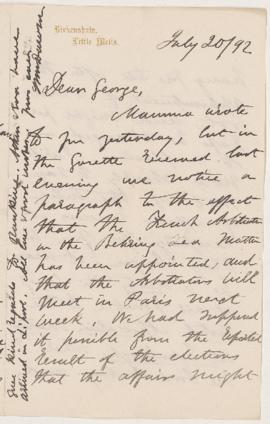 Birkenshaw,
Little Metis.
July 20/92
Dear George,
Mamma wrote
to you yesterday, but in
the Gazette received last
evening we notice a
paragraph to the effect
that the French Arbitrator
in the Behring Sea Matter
has been appointed, and
that the Arbitrators will
meet in Paris next
week. We had supposed
it possible from the
result of the elections
that the affairs might
Give kind regards to
arrived in L'pool. All